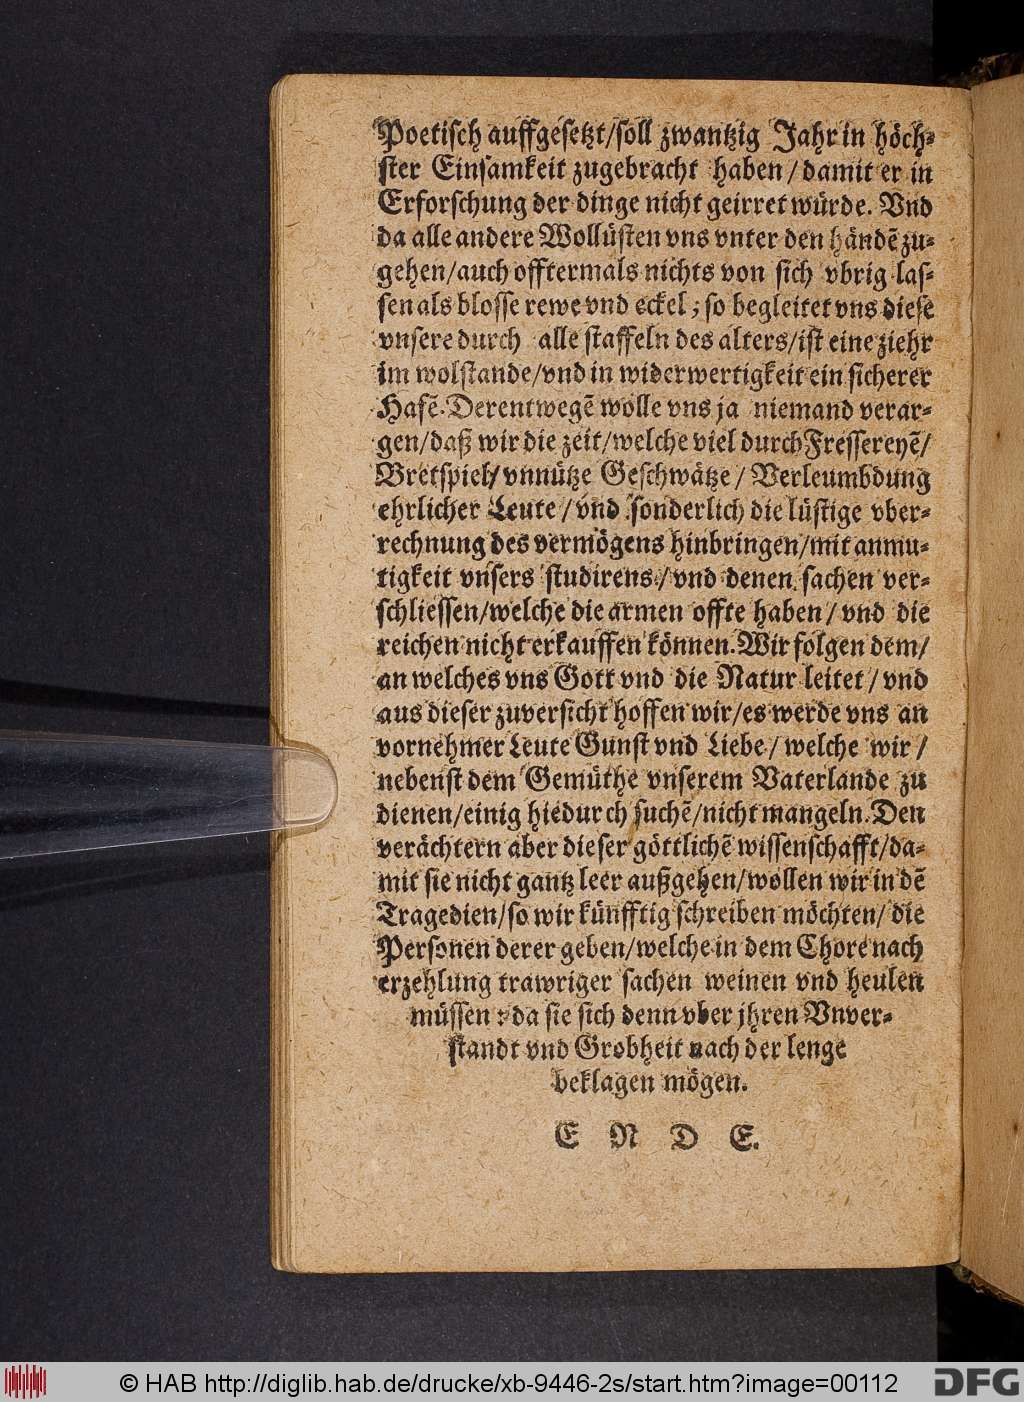 Poetisch auffgesetzt/soll zwantzig Jahr in höch-
ster Einsamkeit zugebracht haben/damit er in
Erforschung der dinge nicht geirret würde. Vnd
da alle andere Wollüsten vns vnter den händẽ zu-
gehen/auch offtermals nichts von sich vbrig las-
sen als blosse rewe vnd eckel; so begleitet vns diese
vnsere durch alle staffeln des alters/ist eine ziehr
im wolstande/vnd in widerwertigkeit ein sicherer
Hafẽ. Derentwegẽ wolle vns ja niemand verar-
gen/daß wir die zeit/welche viel durch Fressereyẽ/
Bretspiel/vnnütze Geschwätze/Verleumbdung
ehrlicher Leute/vnd sonderlich die lüstige vber-
rechnung des vermögens hinbringen/mit anmu-
tigkeit vnsers studirens/vnd denen sachen ver-
schliessen/welche die armen offte haben/vnd die
reichen nicht erkauffen können. Wir folgen dem/
an welches vns Gott vnd die Natur leitet/vnd
aus dieser zuversicht hoffen wir/es werde vns an
vornehmer Leute Gunst vnd Liebe/welche wir/
nebenst dem Gemüthe vnserem Vaterlande zu
dienen/einig hiedurch suchẽ/nicht mangeln. Den
verächtern aber dieser göttlichẽ wissenschafft/da-
mit sie nicht gantz leer außgehen/wollen wir in dẽ
Tragedien/so wir künfftig schreiben möchten/die
Personen derer geben/welche in dem Chore nach
erzehlung trawriger sachen weinen vnd heulen
müssen: da sie sich denn vber jhren Vnver-
standt vnd Grobheit nach der lenge
beklagen mögen.
E N D E.
© HAB http://diglib.hab.de/drucke/xb-9446-2s/start.htm?image=00112
DFG